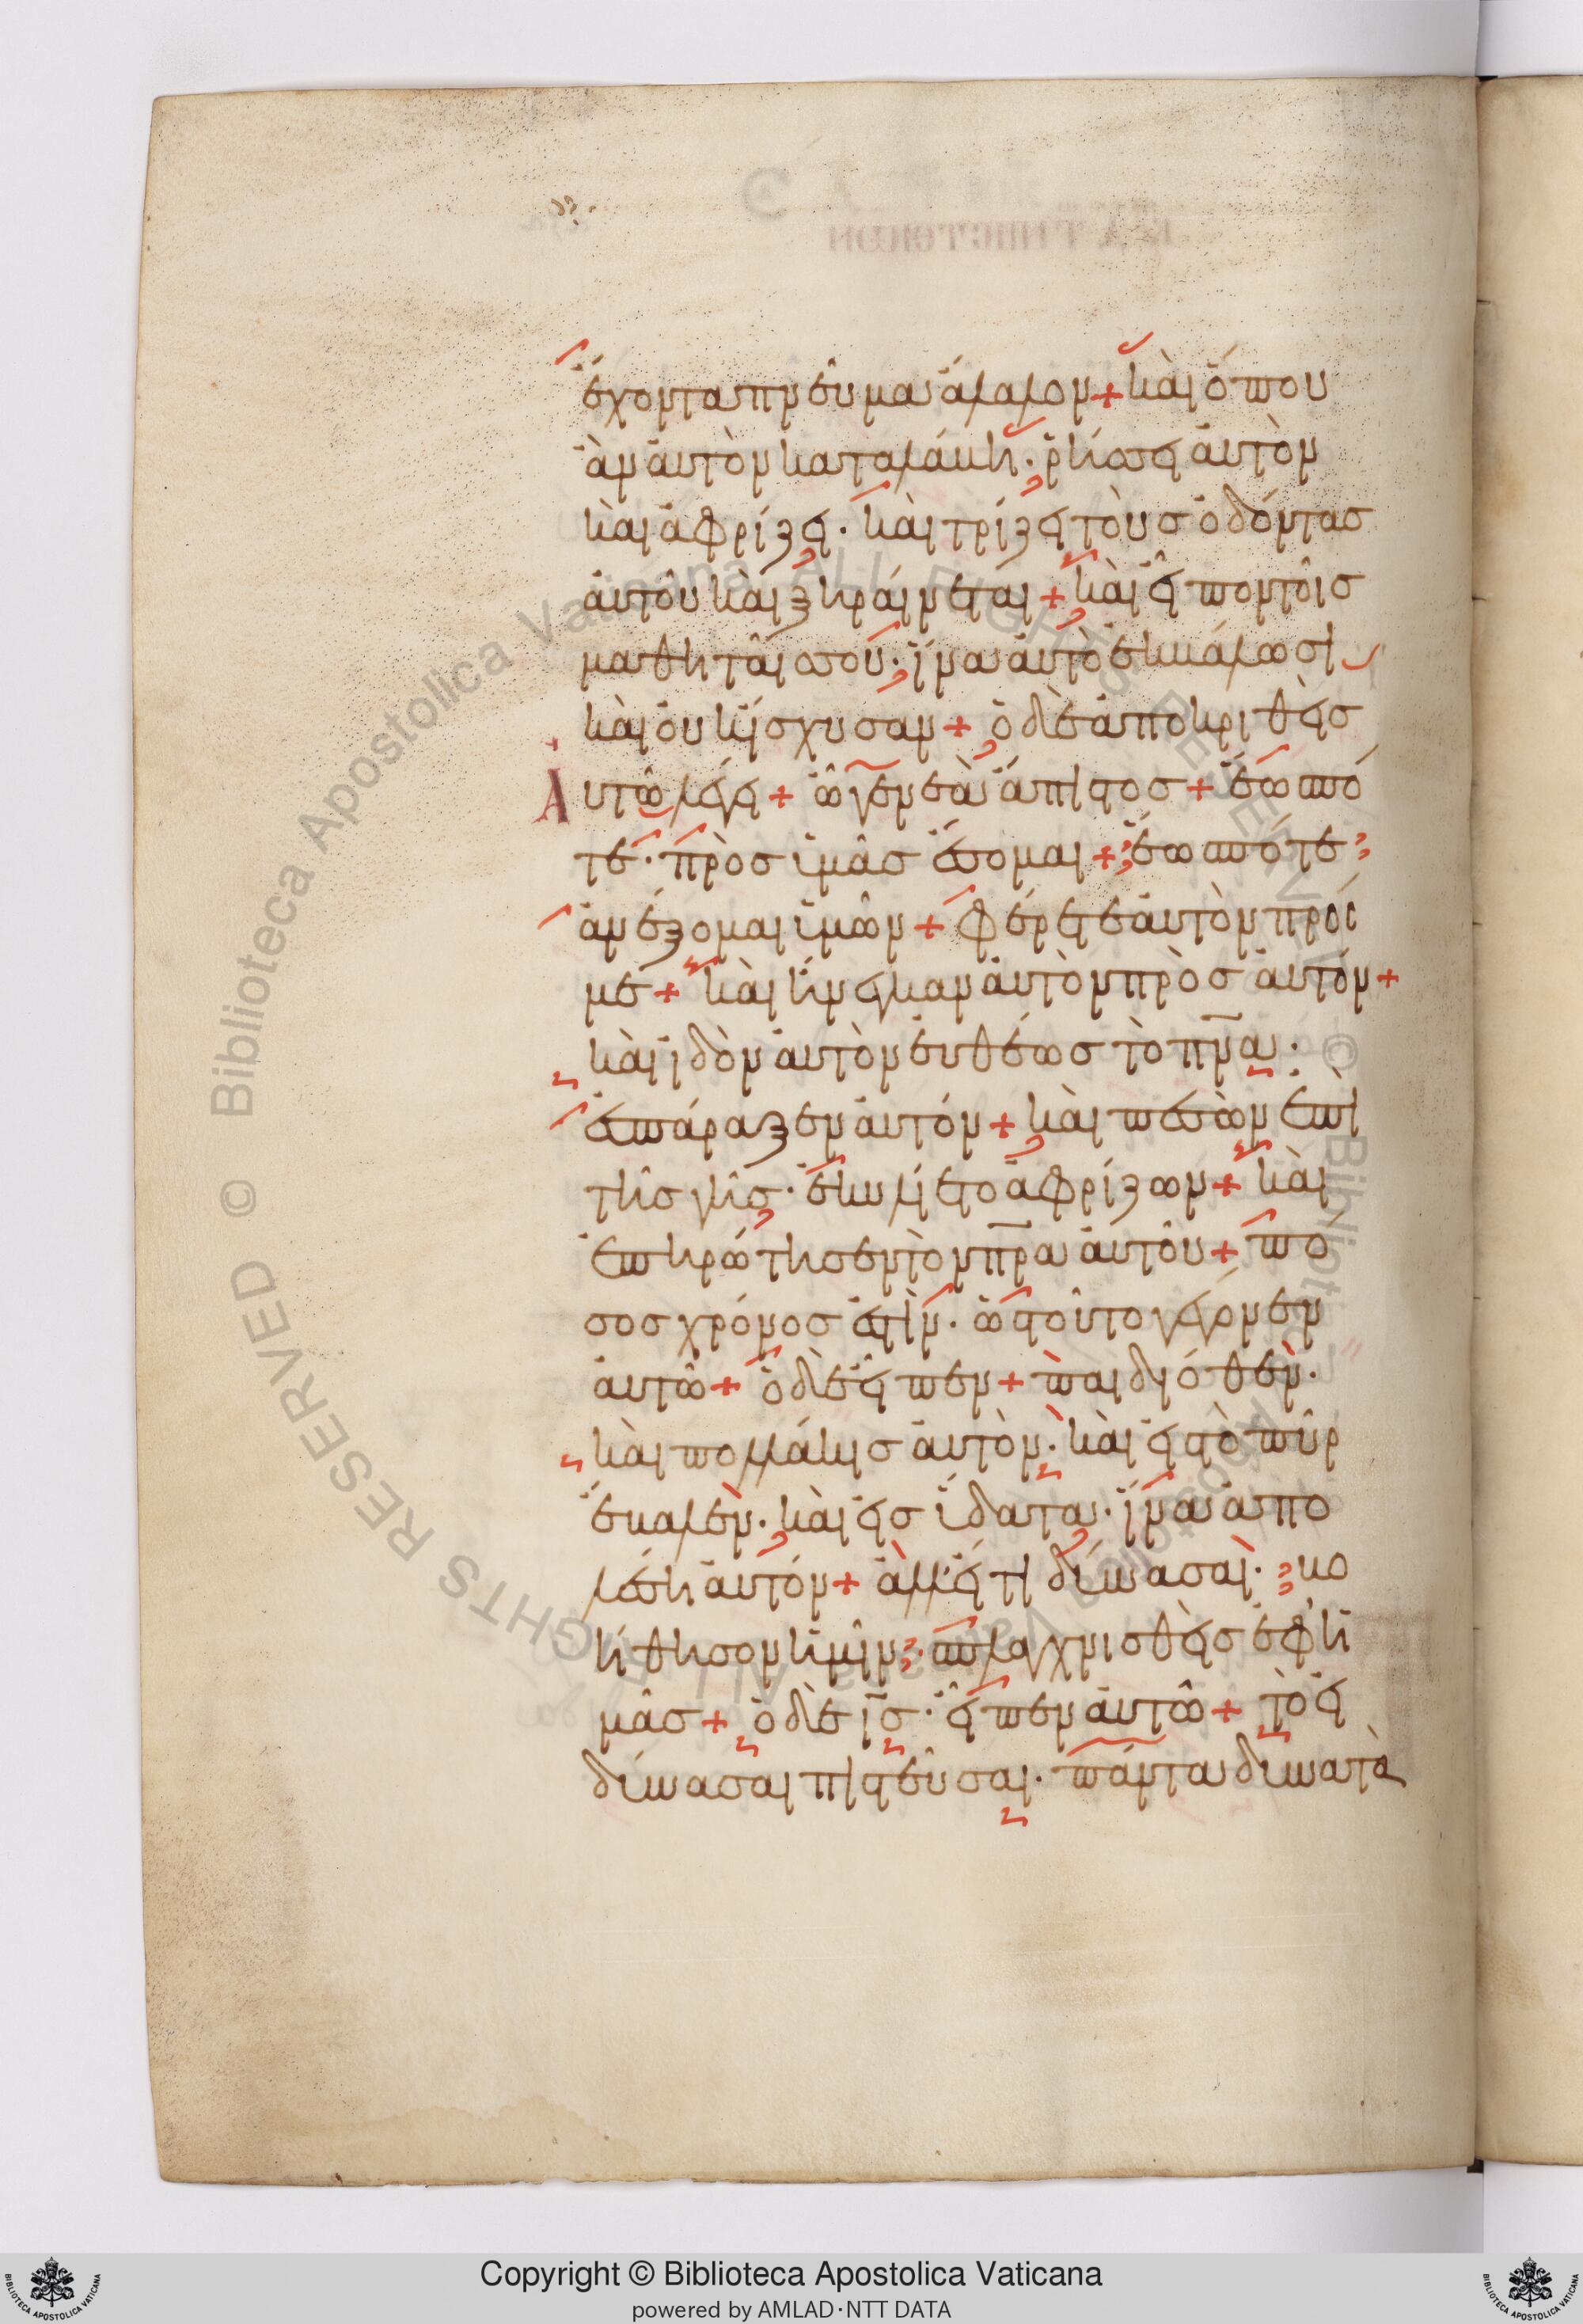 ἔχοντα πνεῦμα ἄλαλον + καὶ ὅπου
ἂν ἀυτὸν καταλάβη · ῥήσσει ἀυτὸν
καὶ ἀφρίζει · καὶ τρίζει τοὺσ ὀδόντασ
ἀυτοῦ καὶ ξηραίνεται + καὶ εἶπον τοῖσ
μαθηταῖ σου · ἵνα ἀυτὸ ἐκβάλωσι
καὶ οὐκ ἴσχυσαν + ὁ δὲ ἀποκριθεὶσ
Αυτῶ λέγει + ὦ γενεὰ ἄπιστοσ + ἕωσ πό
τε · πρὸσ ὑμᾶσ ἔσομαι + ἕωσ πότε
ἀνέξομαι ὑμῶν + φέρετε ἀυτὸν πρόσ
με + καὶ ἤνεγκαν ἀυτὸν πρὸσ ἀυτόν +
καὶ ἰδὸν ἀυτὸν ἐυθέωσ τὸ πνα ·
ἐσπάραξεν ἀυτόν + καὶ πεσὼν ἐπὶ
τῆσ γῆσ · ἐκυλίετο ἀφρίζων + καὶ
ἐπηρώτησεν τὸν πρα ἀυτοῦ + πό
σοσ χρόνοσ ἐστὶν · ὡσ τοῦτο γέγονεν
ἀυτῶ + ὁ δὲ εἶπεν + παιδιόθεν ·
καὶ πολλάκισ ἀυτὸν · καὶ εἰσ τὸ πῦρ
ἔβαλεν · καὶ εἰσ ὕδατα · ἵνα ἀπο
λέση ἀυτόν + ἀλλ' εἴ τι δύνασαι · βο
ήθησον ἡμῖν · σπλαγχνισθεὶσ ἐφ' ἡ
μᾶσ + ὁ δὲ ισ · εἶπεν ἀυτῶ + τὸ εἰ
δύνασαι πιστεῦσαι · πάντα δυνατὰ
Copyright © Biblioteca Apostolica Vaticana
powered by AMLAD·NTT DATA